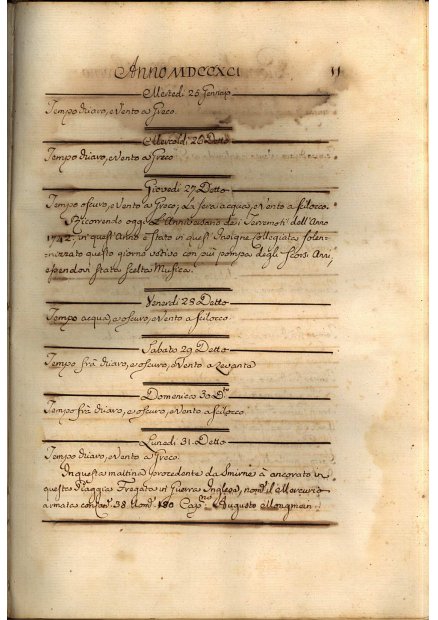 Anno MDCCXCI
11
Martedi 25 Gennaio
Tempo chiaro, e Vento a Greco.
Mercoldi 26 Detto
Tempo chiaro, e Vento a Greco
Giovedi 27 Detto
Tempo oscuro, e Vento a Greco; La sera acqua, e Vento a scilocco.
Ricorrendo oggi l'Anniversario dei Terremoti dell'Anno
1742, in quest'Anno è stato in quest'Insigne Collegiata solen-
nizzato questo giorno votivo con più pompa degli scorsi Anni,
essendovi stata scelta Musica.
Venerdi 28 Detto
Tempo acqua, e oscuro, e Vento a scilocco.
Sabato 29 Detto
Tempo frà chiaro, e oscuro, e Vento a Levante
Domenica 30 Do
Tempo frà chiaro, e oscuro, e Vento a scilocco
Lunedi 31 Detto
Tempo chiaro, e Vento a Greco.
In questa mattina procedente da Smirne à ancorato in
questa Piaggia Fregata in Guerra Inglese, nomta il Mercurio
armata con Can. 38 Uom. 180 Capno Augusto